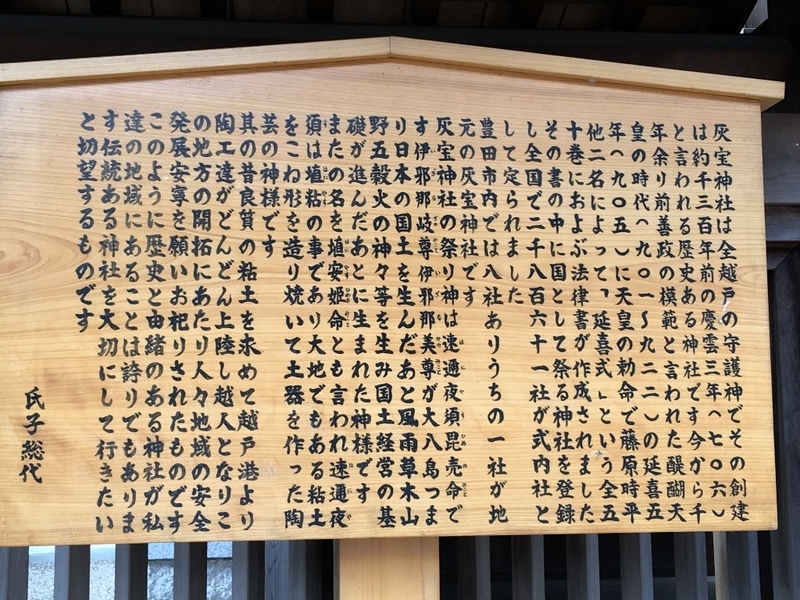 灰宝神社は全越戸の守護神でその創建
は約千三百年前の慶雲三年(七〇六)
と言われる歴史ある神社です今から千
年余り前善政の模範と言われた醍醐天
皇の時代(九〇一~九二二)の延喜五
年(九〇五)に天皇の勅命で藤原時平
他二名によって「延喜式」という全五
十巻におよぶ法律書が作成されました
その書の中に国として祭る神社を登録
し全国で二千八百六十一社が式内社と
して定められました
豊田市内では八社ありうちの一社が地
元の灰宝神社です
灰宝神社の祭り神は速邇夜須毘売命で
す伊邪那岐尊伊邪那美尊が大八島つま
り日本の国土を生んだあと風雨草木山
野五穀火の神々等を生み国土経営の基
礎が進んだあとに生まれた神様です
またの名を埴安姫命とも言われ速邇夜
須は埴粘の事であり大地でもある粘土
をこね形を造り焼いて土器を作った陶
芸の神様です
其の昔良質の粘土を求めて越戸港より
陶工達がどんどん上陸し越人となりこ
の地方の開拓にあたり人々地域の安全
発展安寧を願いお祀りされたものです
このように歴史と由緒のある神社が私
達の地域にあることは誇りでもありま
す伝統ある神社を大切にして行きたい
と切望するものです
氏子総代